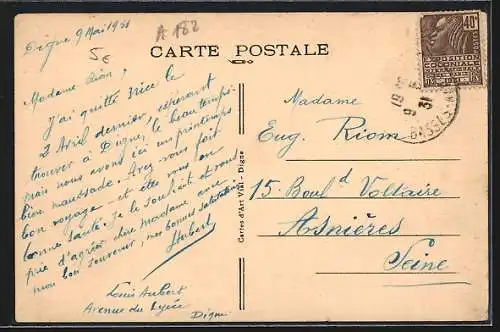 Digne 9 Mai 1931
5€
A 182
CARTE POSTALE
Madame Riom,
J'ai quitté Nice le
2 Avril dernier, espérant
trouver à Digne, le beau temps.
mais nous avons ici un printemps
bien maussade. Avez vous fait
bon voyage - et êtes vous en
bonne santé. Je le souhaite et vous
prie d'agréer chère madame avec
mon bon souvenir, nos bonnes salutations
Aubert
Louis Aubert
Avenue du Lycée
Digne
Cartes d'Art Vial - Digne
40c
EXPOSITION
COLONIALE
9
31
BASSES-A
Madame
Eug. Riom
15 Bould Voltaire
Asnières
Seine